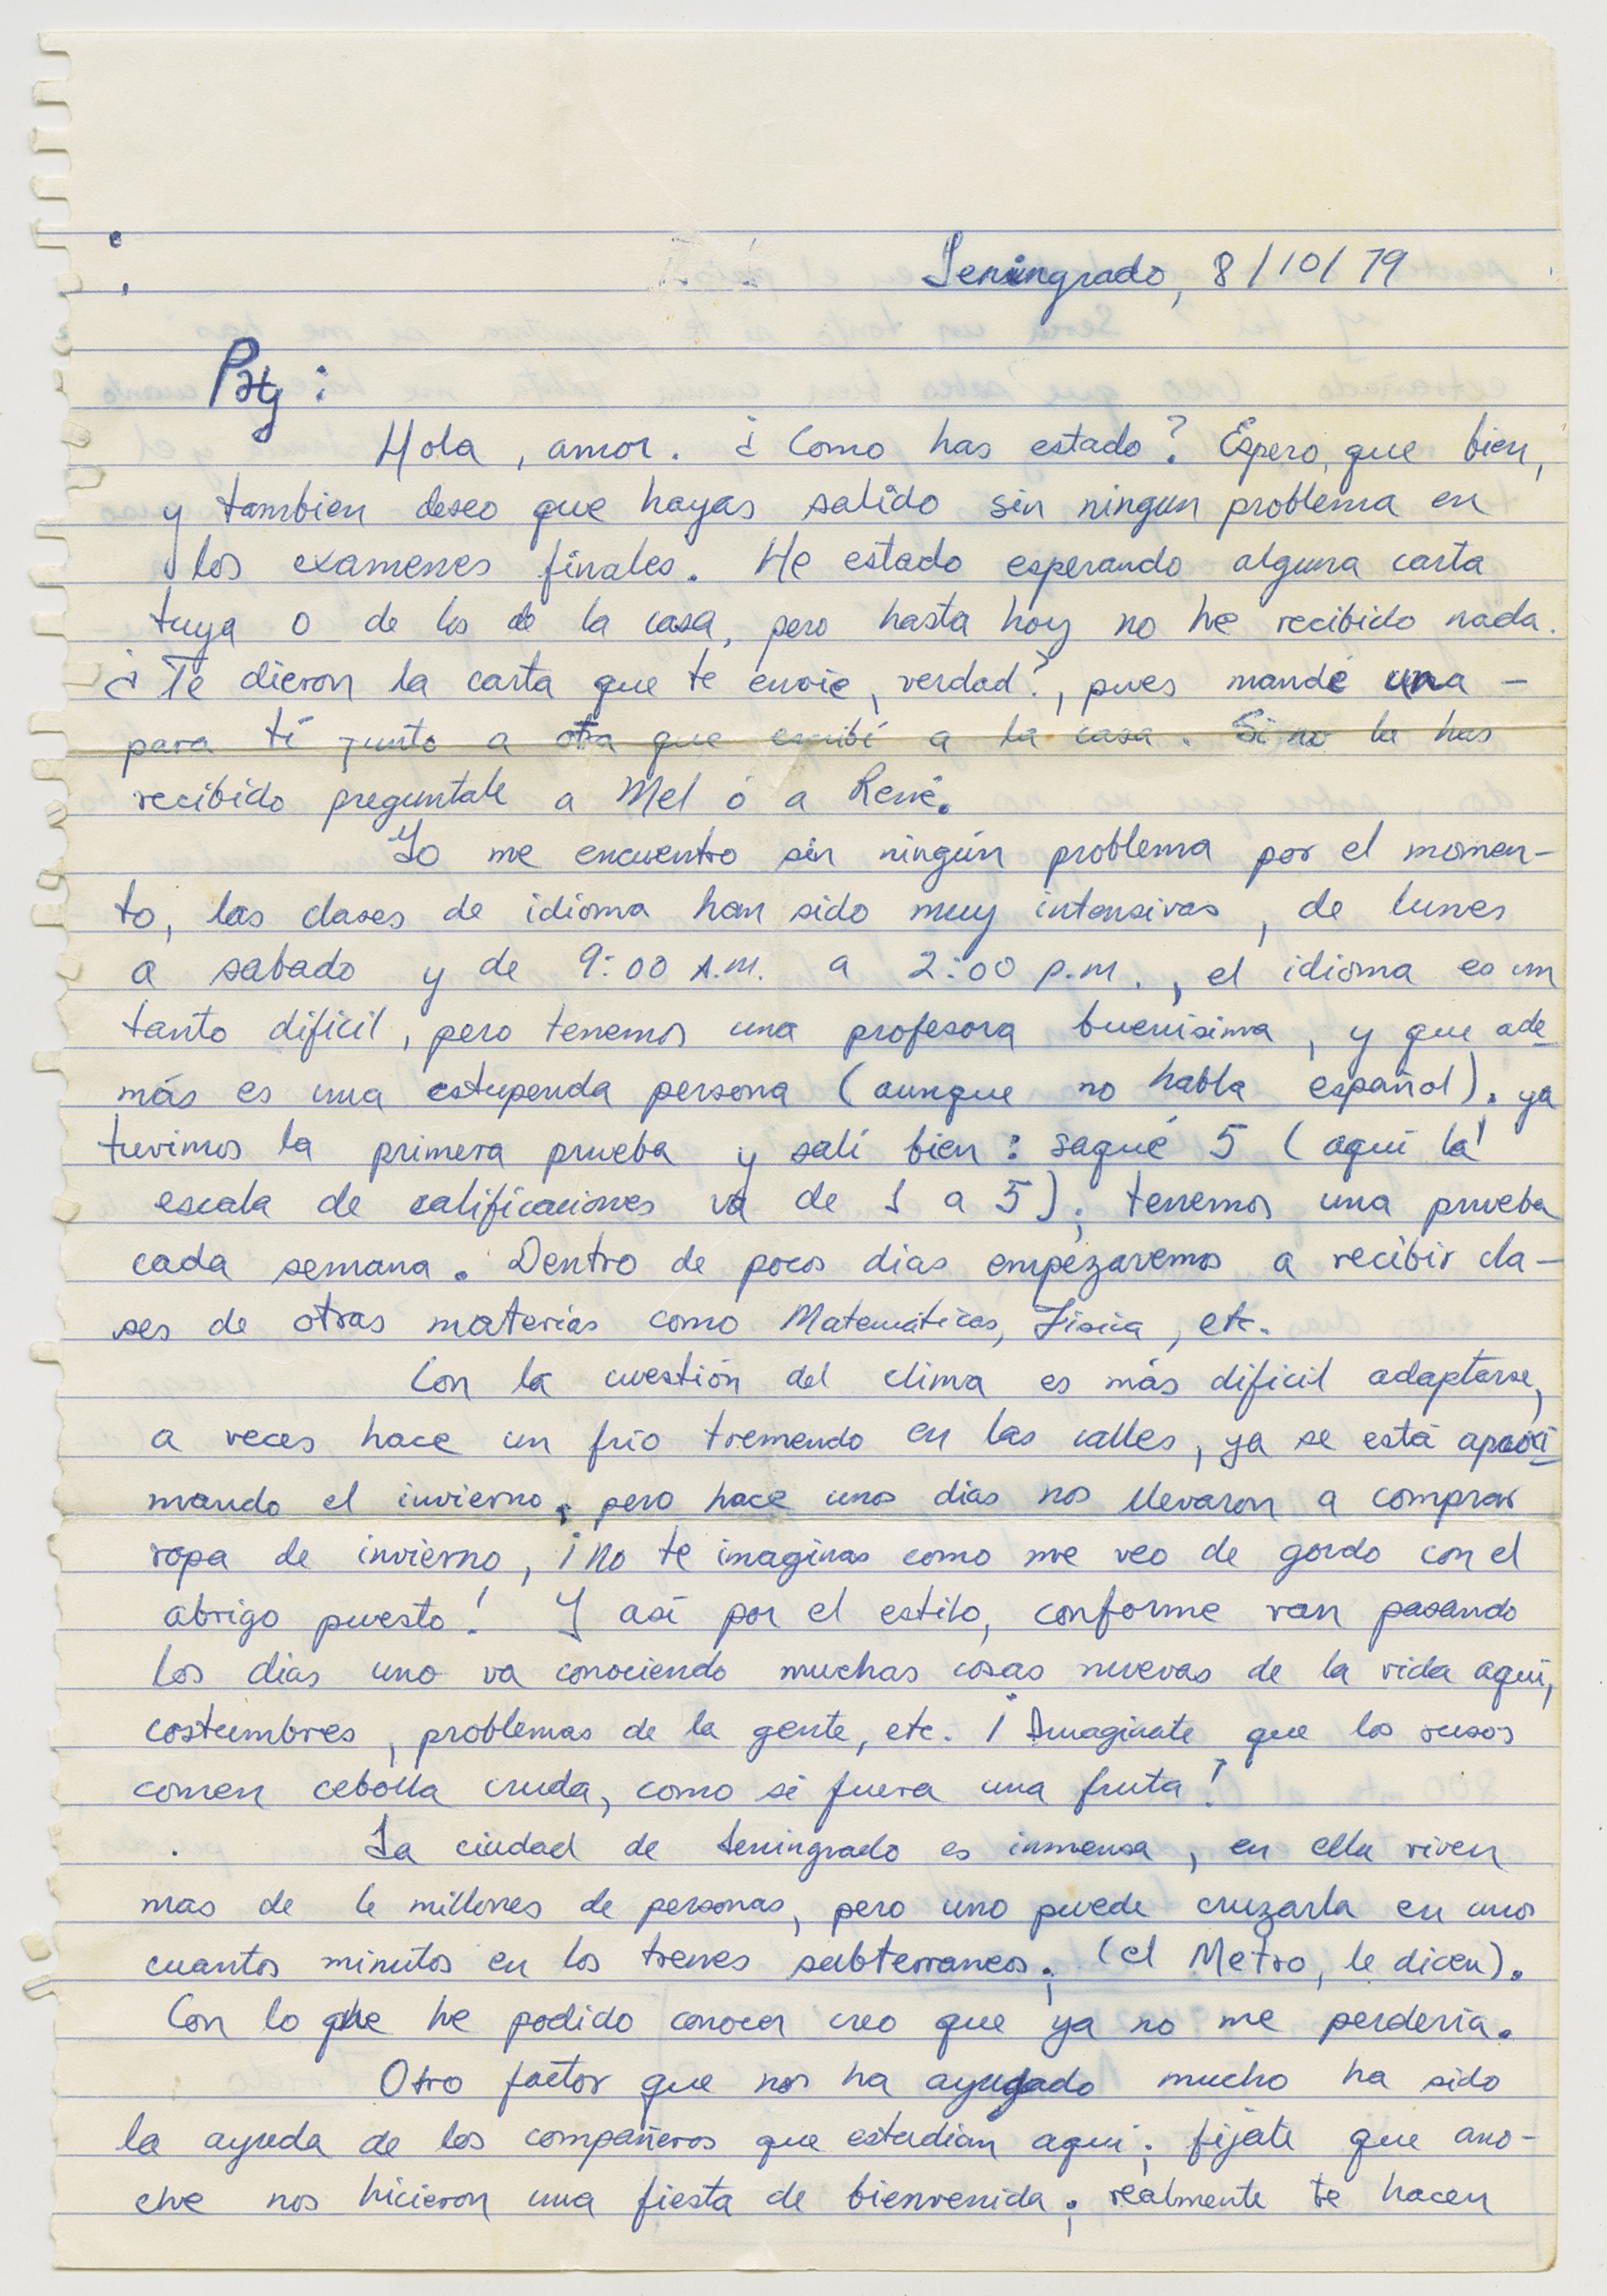 Leningrado, 8/10/79
Paty:
Hola, amor. ¿Como has estado? Espero, que bien,
y tambien deseo que hayas salido sin ningun problema en
los examenes finales. He estado esperando alguna carta
tuya o de los de la casa, pero hasta hoy no he recibido nada.
¿Te dieron la carta que te envie, verdad?, pues mandé una -
para tí junto a otra que escribí a la casa. Si no la has
recibido preguntale a Mel ó a René.
Yo me encuentro sin ningún problema por el momen-
to, las clases de idioma han sido muy intensivas, de lunes
a sabado y de 9:00 A.M. a 2:00 p.m., el idioma es un
tanto dificil, pero tenemos una profesora buenisima, y que ade-
más es una estupenda persona (aunque no habla español). ya
tuvimos la primera prueba y salí bien: saqué 5 (aquí la
escala de calificaciones va de 1 a 5); tenemos una prueba
cada semana. Dentro de pocos dias empezaremos a recibir cla-
ses de otras materias como Matemáticas, Física, etc.
Con la cuestión del clima es más dificil adaptarse,
a veces hace un frio tremendo en las calles, ya se está aproxi-
mando el invierno, pero hace unos dias nos llevaron a comprar
ropa de invierno, ¡no te imaginas como me veo de gordo con el
abrigo puesto! Y así por el estilo, conforme van pasando
los dias uno va conociendo muchas cosas nuevas de la vida aquí,
costumbres, problemas de la gente, etc. ¡Imaginate que los rusos
comen cebolla cruda, como si fuera una fruta!
La ciudad de Leningrado es inmensa, en ella viven
mas de 6 millones de personas, pero uno puede cruzarla en unos
cuantos minutos en los trenes subterraneos; (el Metro, le dicen).
Con lo que he podido conocer creo que ya no me perdería.
Otro factor que nos ha ayudado mucho ha sido
la ayuda de los compañeros que estudian aquí; fijate que ano-
che nos hicieron una fiesta de bienvenida; realmente te hacen